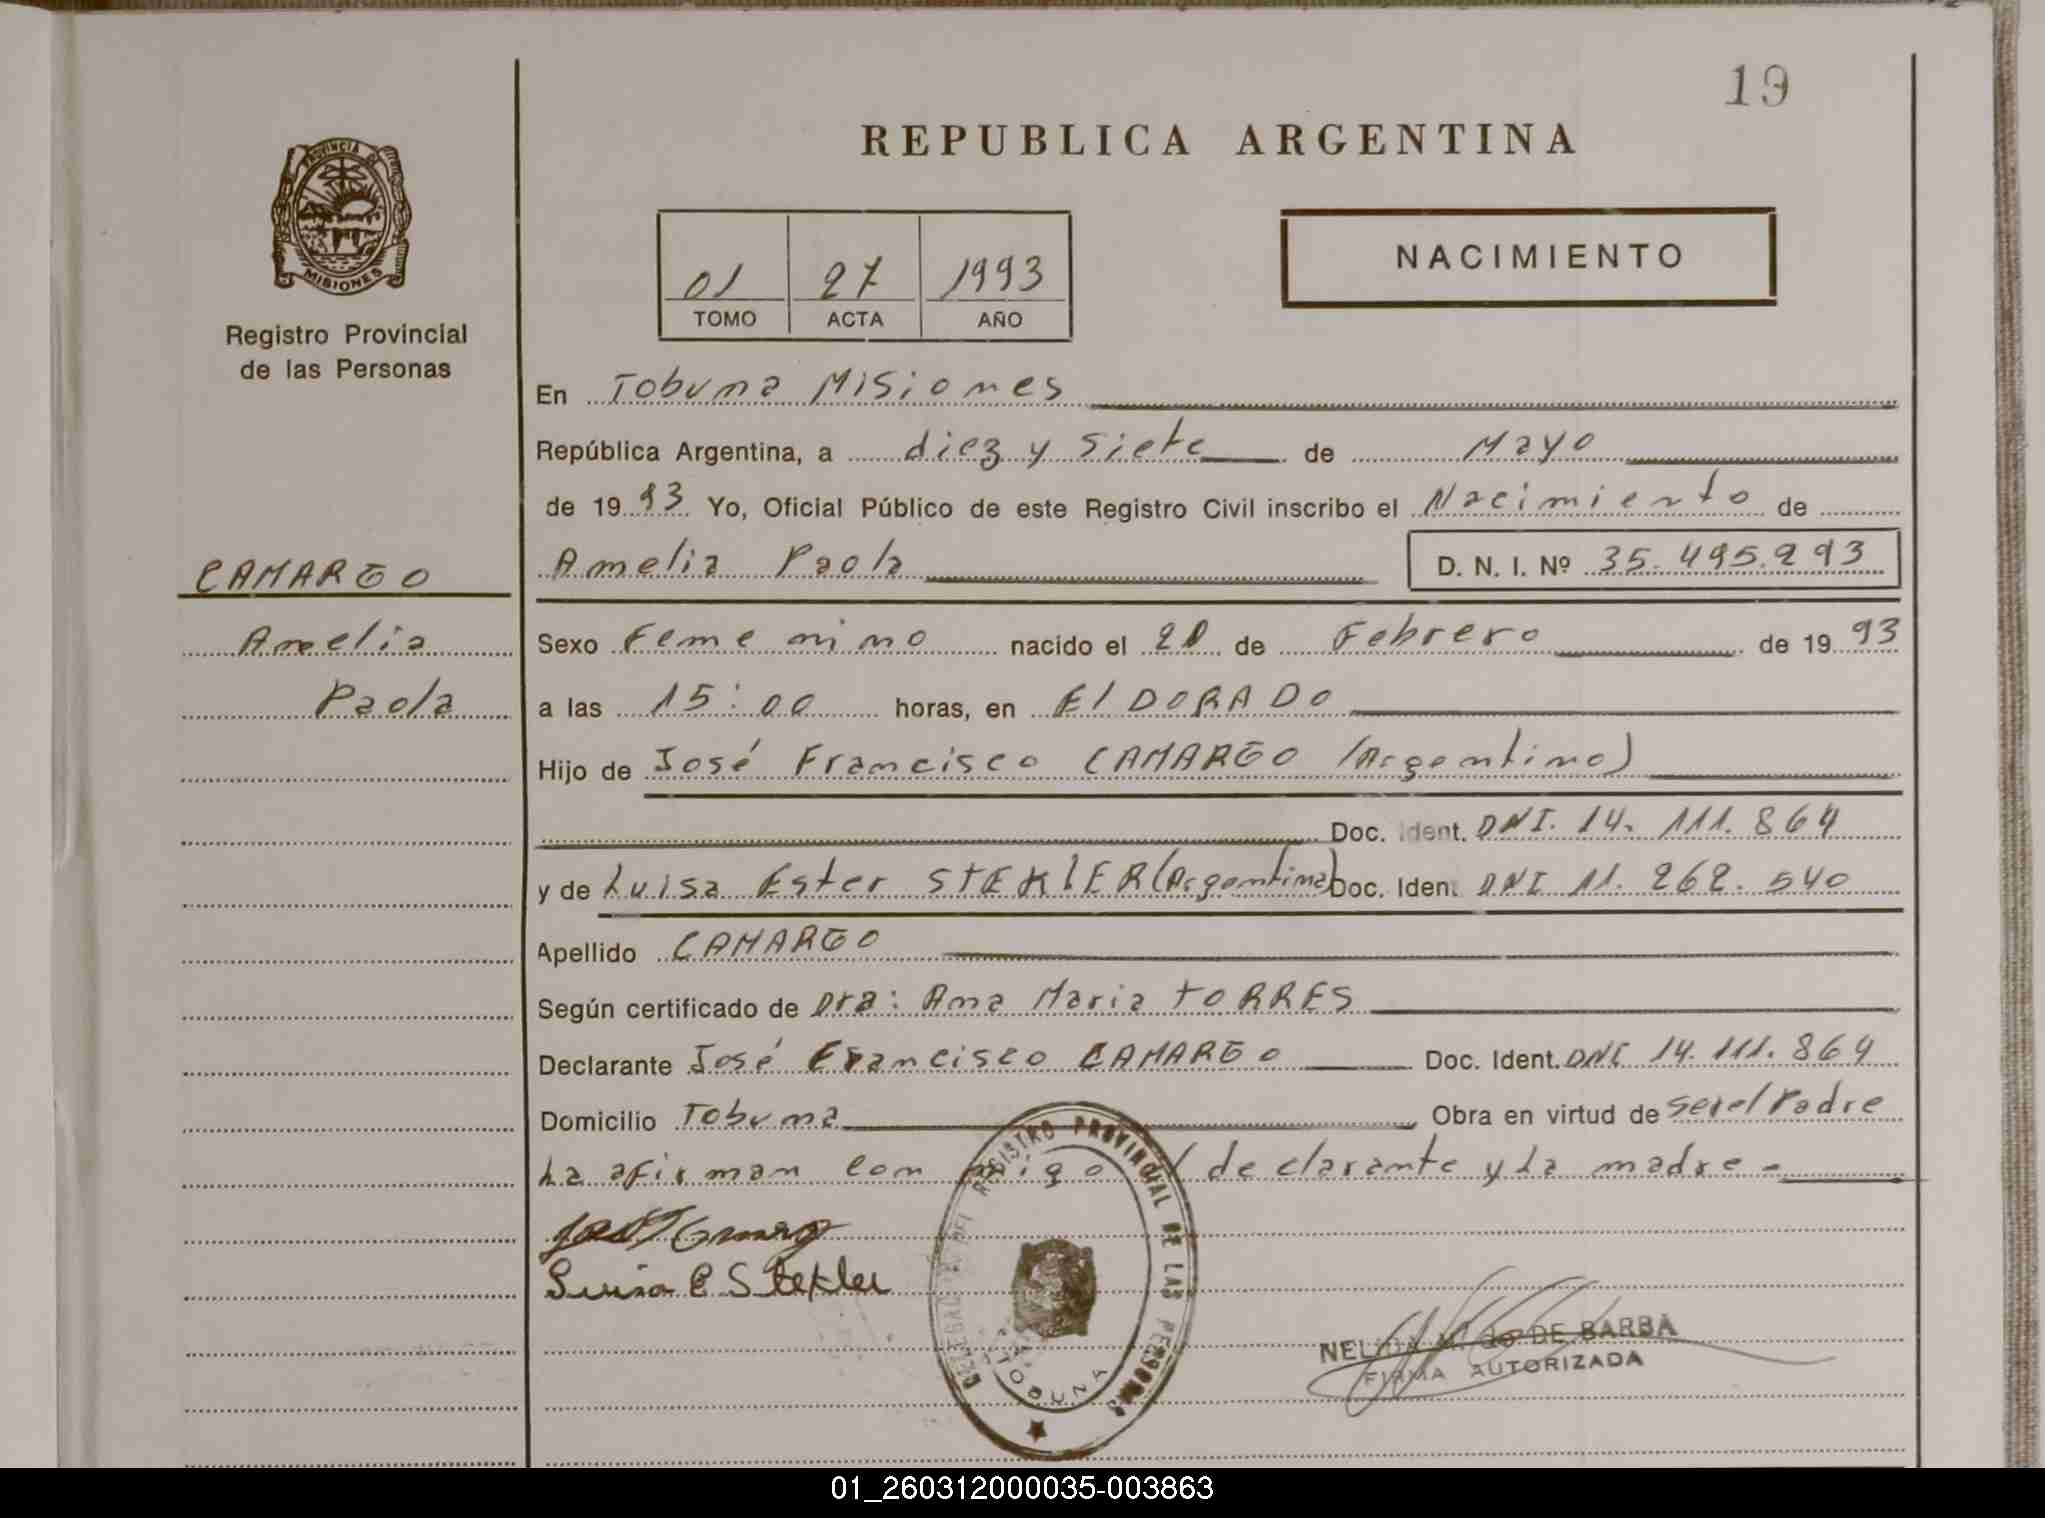 19
REPUBLICA ARGENTINA
PROVINCIA DE
MISIONES
Registro Provincial
de las Personas
01 27 1993
TOMO ACTA AÑO
NACIMIENTO
En Tobuna Misiones
República Argentina, a diez y siete de Mayo
de 1993 Yo, Oficial Público de este Registro Civil inscribo el Nacimiento de
Amelia Paola D. N. I. Nº 35.495.293
CAMARGO
Amelia
Paola
Sexo Femenino nacido el de Febrero de 1993
a las 15:00 horas, en ElDORADO
Hijo de José Francisco CAMARGO (Argentino)
Doc. Ident. DNI. 14. 111. 864
y de Luisa Ester STEKlER (Argentina) Doc. Iden. DNI 11. 262. 540
Apellido CAMARGO
Según certificado de Dra: Ana Maria TORRES
Declarante José Francisco CAMARGO Doc. Ident. DNI 14. 111. 864
Domicilio Tobuna Obra en virtud de ser el Padre
La afirman con migo declarante y La madre -
Luisa E Stekler
REGISTRO PROVINCIAL DE LAS PERSONAS
TOBUNA
DE BARBA
FIRMA AUTORIZADA
01_260312000035-003863